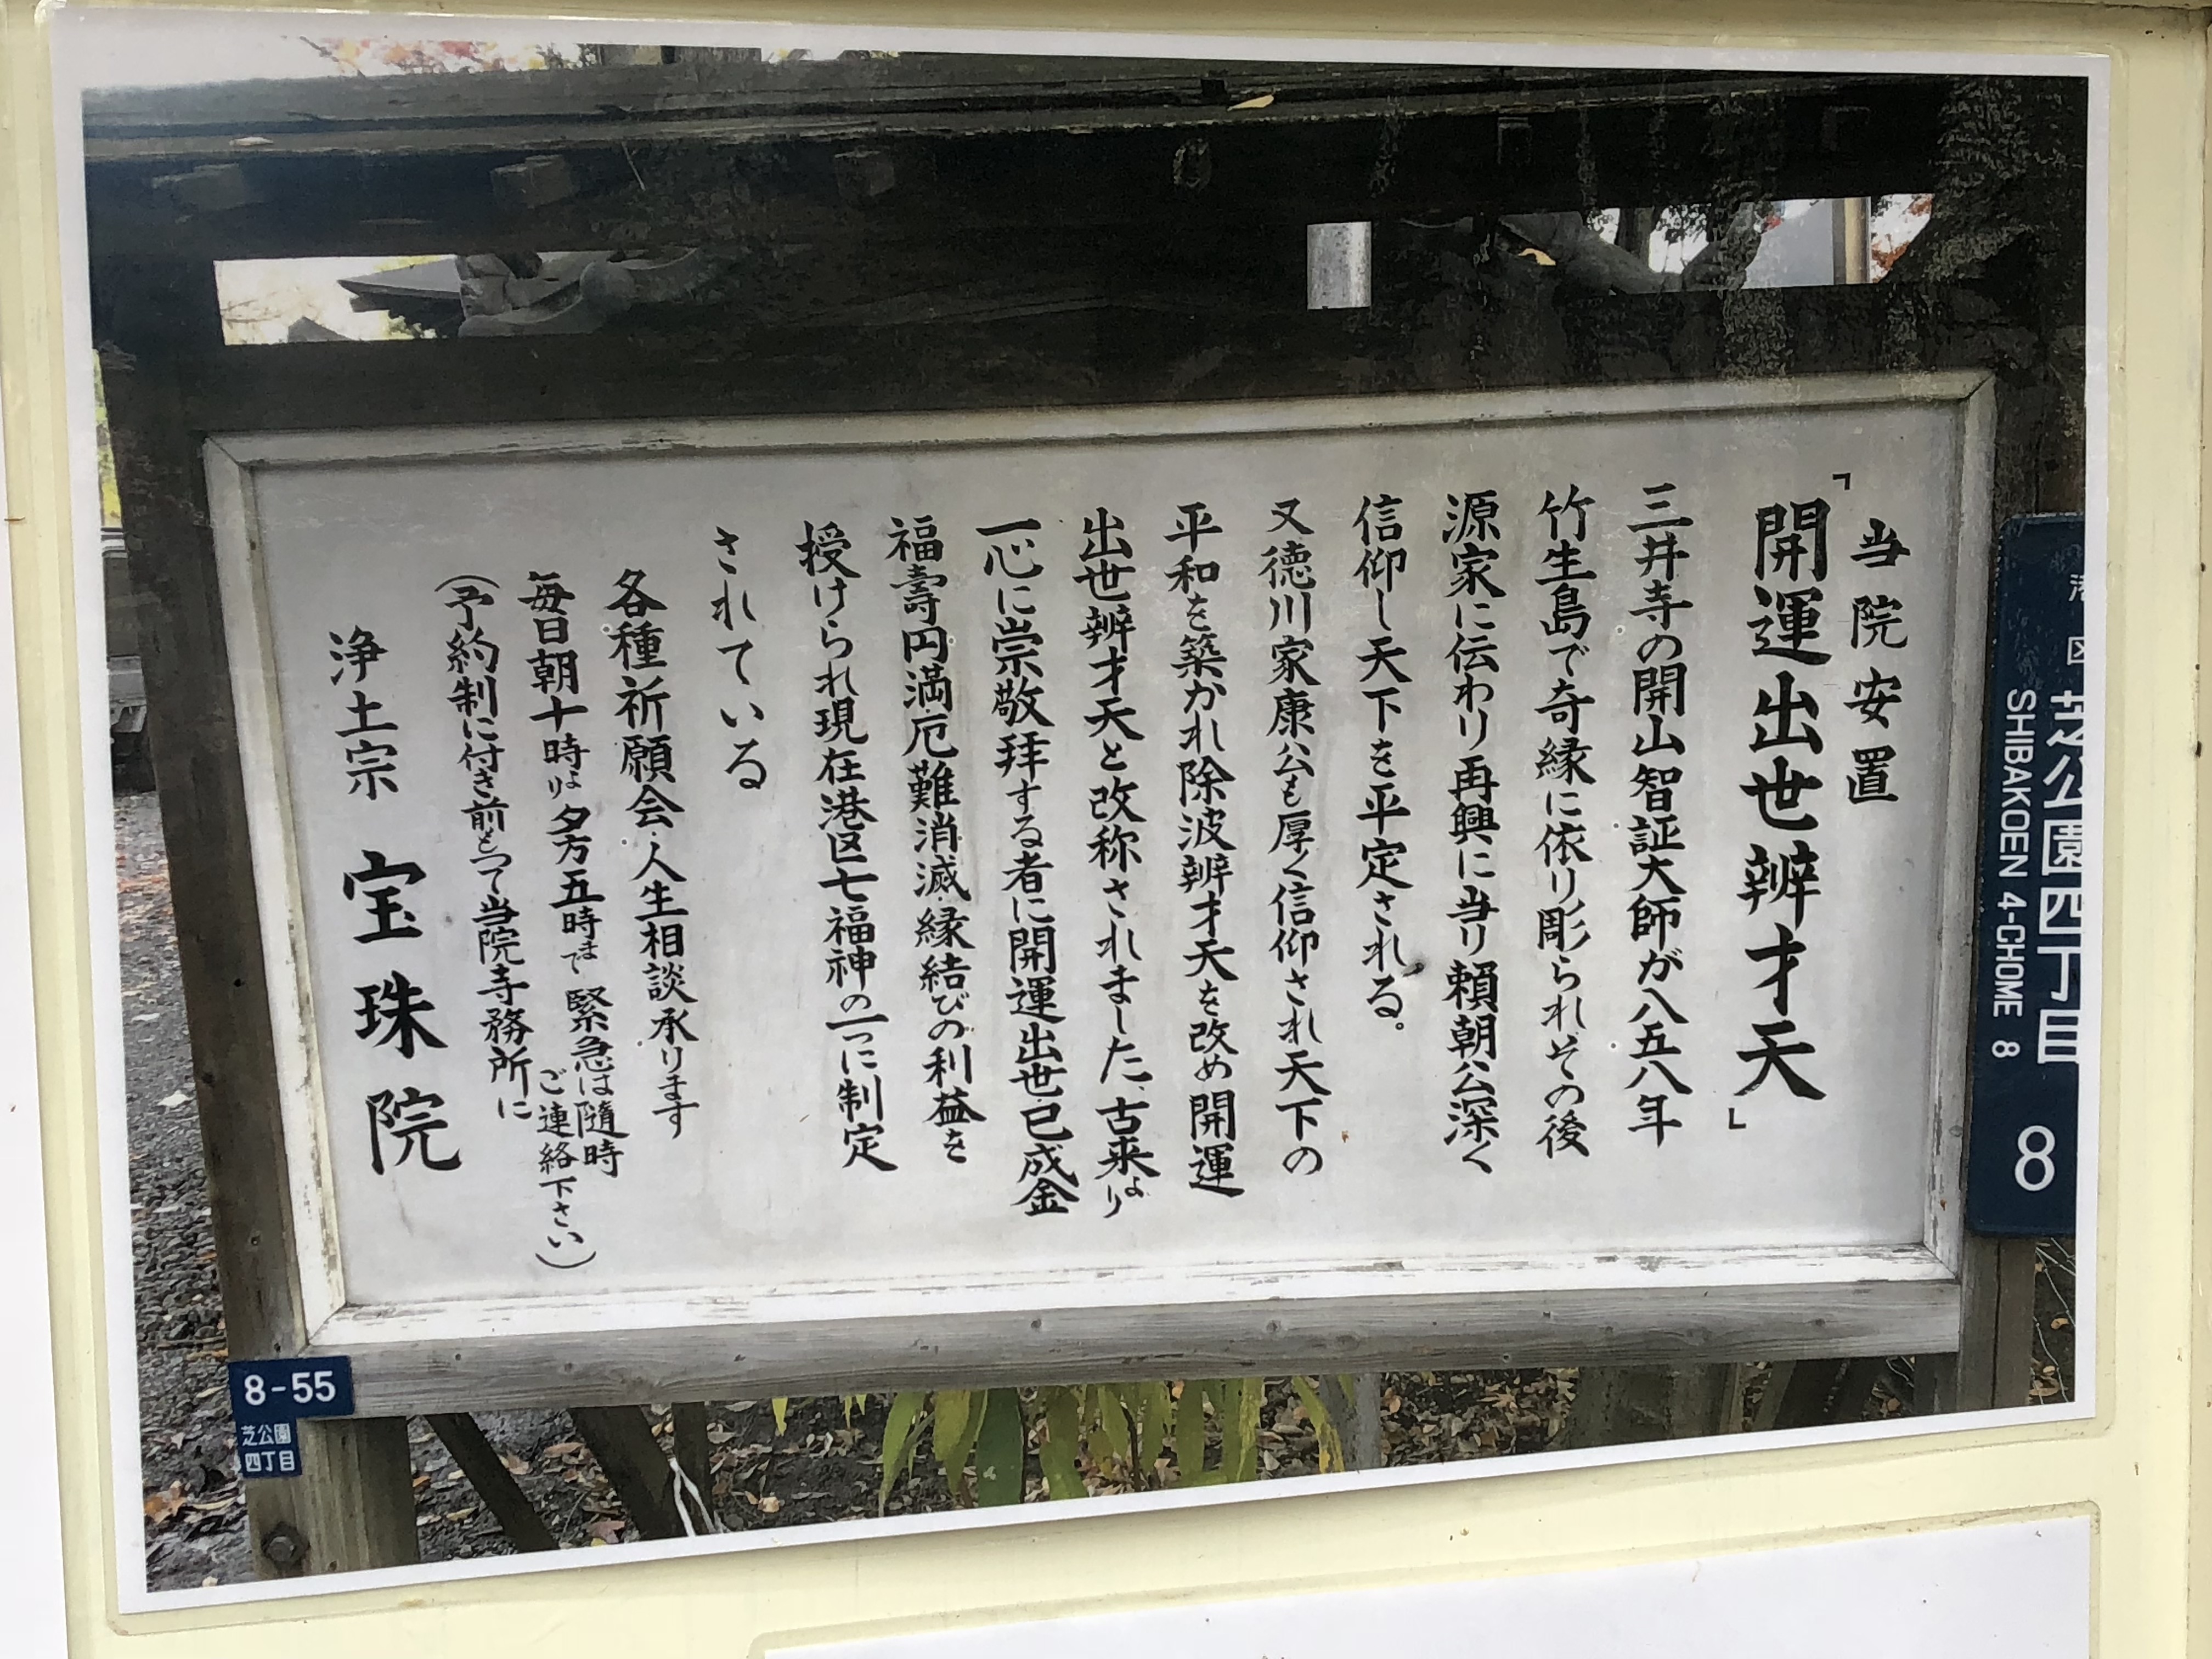 当院安置
「開運出世辨才天」
三井寺の開山智証大師が八五八年
竹生島で奇縁に依り彫られその後
源家に伝わり再興に当り頼朝公深く
信仰し天下を平定される。
又徳川家康公も厚く信仰され天下の
平和を築かれ除波辨才天を改め開運
出世辨才天と改称されました、古来より
一心に崇敬拝する者に開運出世巳成金
福壽円満厄難消滅縁結びの利益を
授けられ現在港区七福神の一つに制定
されている
各種祈願会・人生相談承ります
毎日朝十時より夕方五時まで 緊急は隨時
(予約制に付き前もって当院寺務所に
ご連絡下さい)
浄土宗 宝珠院
区 芝公園四丁目
SHIBAKOEN 4-CHOME 8
8
8-55
芝公園
四丁目